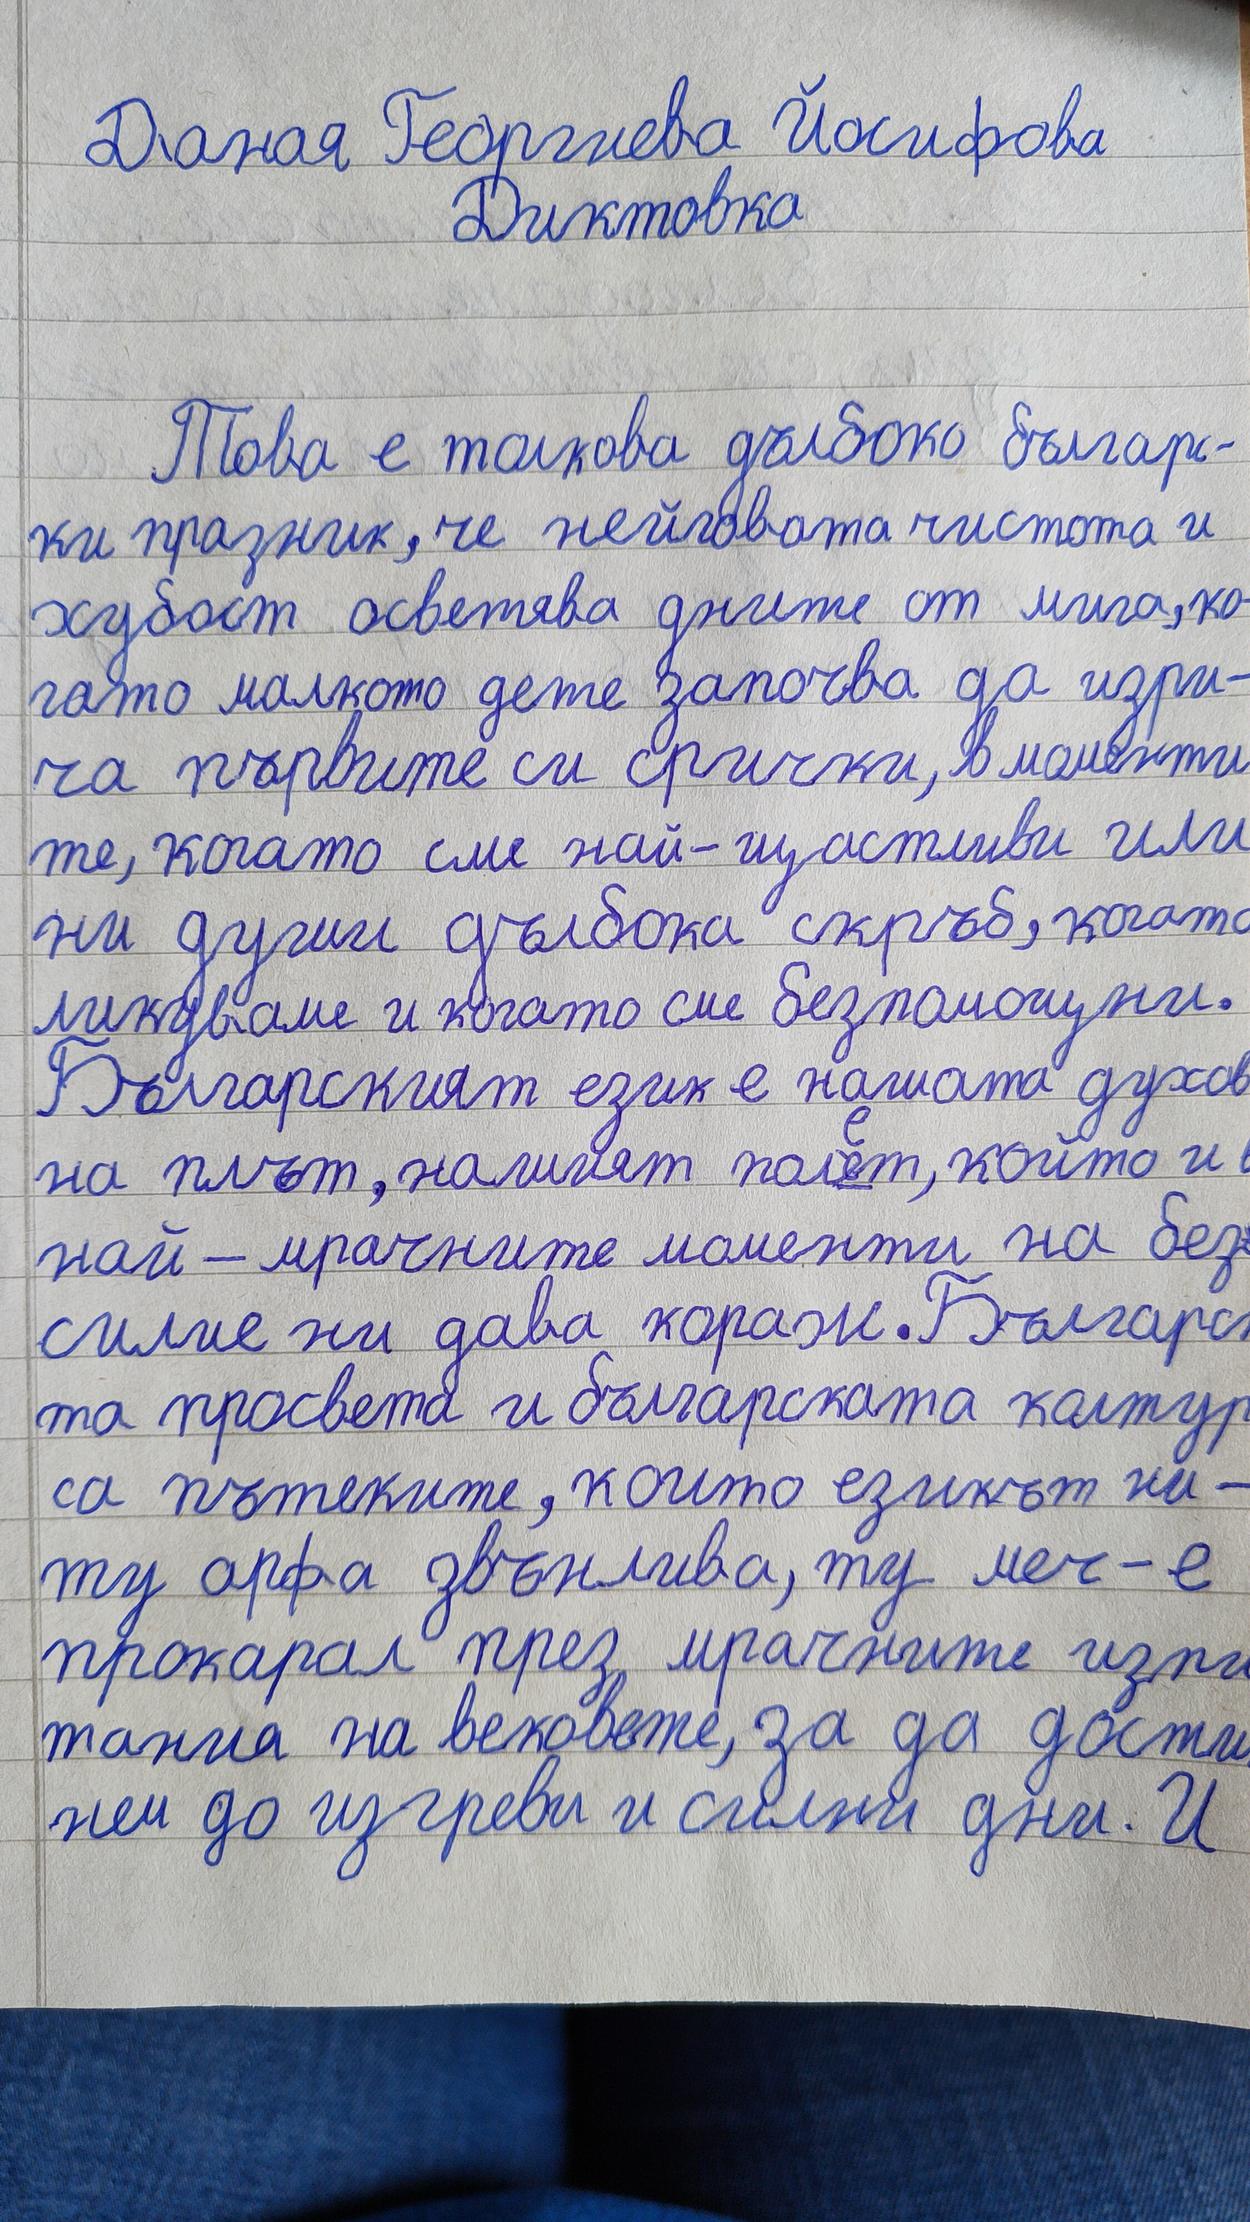 Даная Георгиева Йосифова
Диктовка
Това е толкова дълбоко българс-
ки празник, че нейговата чистота и
хубост осветява дните от мига, ко-
гато малкото дете започва да изри-
ча първите си срички, в моменти
те, когато сме най-щастливи или
ни души дълбока скръб, когато
ликуваме и когато сме безпомощни.
Българският език е нашата духов
на плът, нашият полет, който и в
най-мрачните моменти на без
силие ни дава кораж. Българск
та просвета и българската култур
са пътеките, които езикът ни -
ту арфа звънлива, ту меч - е
прокарал през мрачните изпи
тания на вековете, за да дости
нем до изгреви и силни дни. И